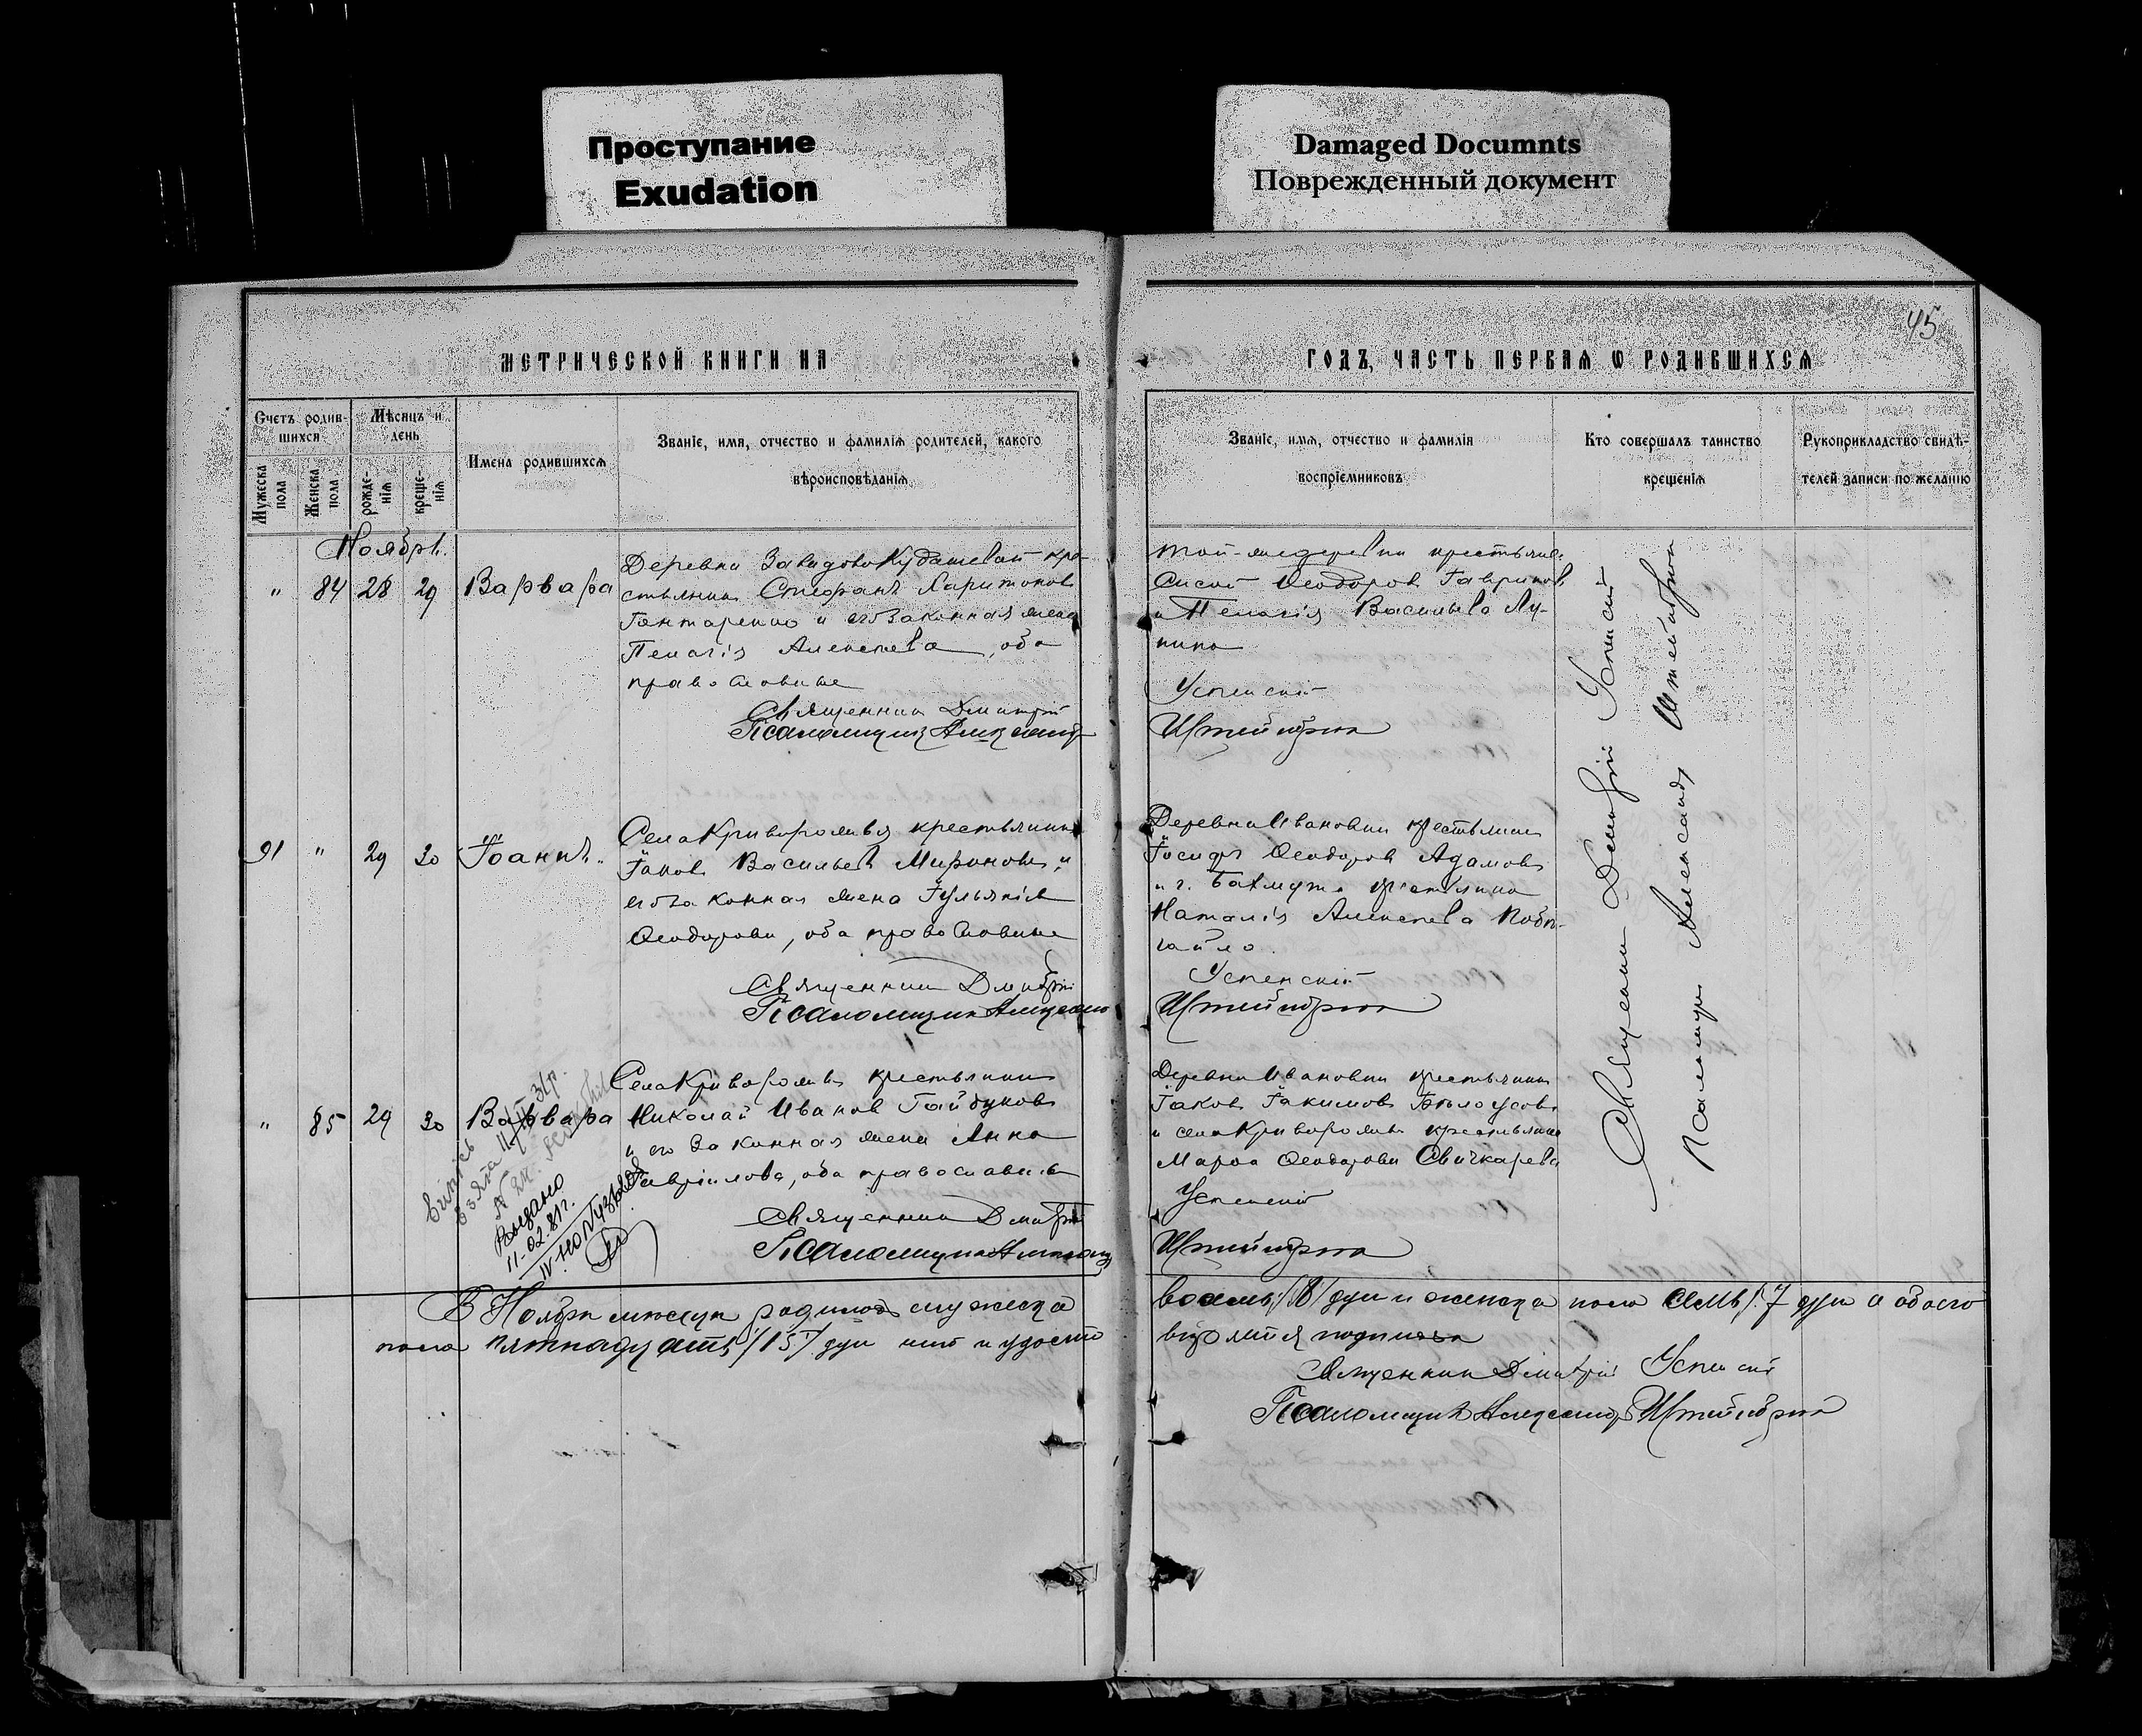 Проступание
Exudation
Damaged Documnts
Поврежденный документ
45
МЕТРИЧЕСКОЙ КНИГИ НА
ГОДЪ, ЧАСТЬ ПЕРВАЯ Ѡ РОДИВШИХСЯ
Счетъ родив-
шихся
Мѣсяцъ и
день
Мужеска
пола
Женска
пола
рожде-
нія
креще-
нія
Имена родившихся
Званіе, имя, отчество и фамилія родителей, какого
вѣроисповѣданія
Званіе, имя, отчество и фамилія
воспріемниковъ
Кто совершалъ таинство
крещенія
Рукоприкладство свидѣ-
телей записи по желанію
Ноябрь.
" 84 28 29 Варвара
Деревни Завидово Кудашевой кре-
стьянинъ Стефанъ Харитоновъ
и его законная жена
Пелагія Алексѣева, оба
православные
Священникъ Дмитрій
Псаломщикъ Александръ
той-же деревни крестьяне
Ѳеодоровъ Гавриковъ
и Пелагія Васильева Лу-
Успенскій
91 " 29 30 Іоаннъ.
Села Криворожья крестьянинъ
Іаковъ Васильевъ Мироновъ и
его законная жена Іульянія
Ѳеодорова, оба православные
Священникъ Дмитрій
Псаломщикъ Александръ
Деревни Ивановки крестьянинъ
Іосифъ Ѳеодоровъ Адамовъ
и г. Бахмута крестьянка
Наталія Алексѣева
Успенскій
" 85 29 30 Варвара
Села Криворожья крестьянинъ
Николай Ивановъ Гайдуковъ
и его законная жена Анна
Гавріилова, оба православные
Священникъ Дмитрій
Псаломщикъ Александръ
Деревни Ивановки крестьянинъ
Іаковъ Іакимовъ Бѣлоусовъ
и села Криворожья крестьянка
Марѳа Ѳеодорова Свичкарева
Успенскій
Выдано
11-02.81г.
Священникъ Дмитрій Успенскій
Псаломщикъ Александръ
В Ноябрѣ мѣсяцѣ родилось мужеска
восемь /8/ душ и женска пола семь /7 душ а обоего
пола пятнадцать /15/ душ
Священникъ Дмитрій Успенскій
Псаломщикъ Александръ